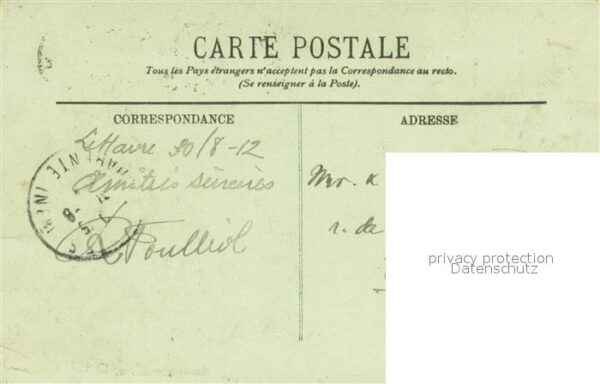 CARTE POSTALE
Tous les Pays étrangers n'acceptent pas la Correspondance au recto.
(Se renseigner à la Poste).
CORRESPONDANCE
ADRESSE
Le Havre 30/8-12
Amitiés sincères
Mr. K
r. de
privacy protection
Datenschutz